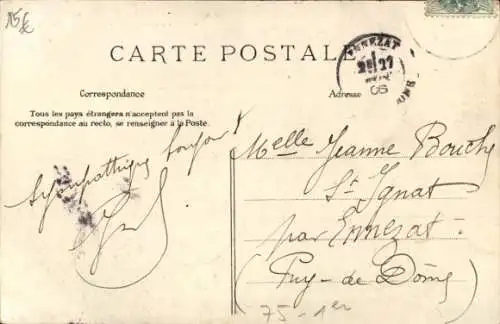 15€
CARTE POSTALE
ENNEZAT
27
06
Correspondance
Adresse
Tous les pays étrangers n'acceptent pas la
correspondance au recto, se renseigner à la Poste.
Sympathique bonjour
Melle Jeanne Bouchy
St Ignat
par Ennezat
(Puy-de Dôme
75-1er